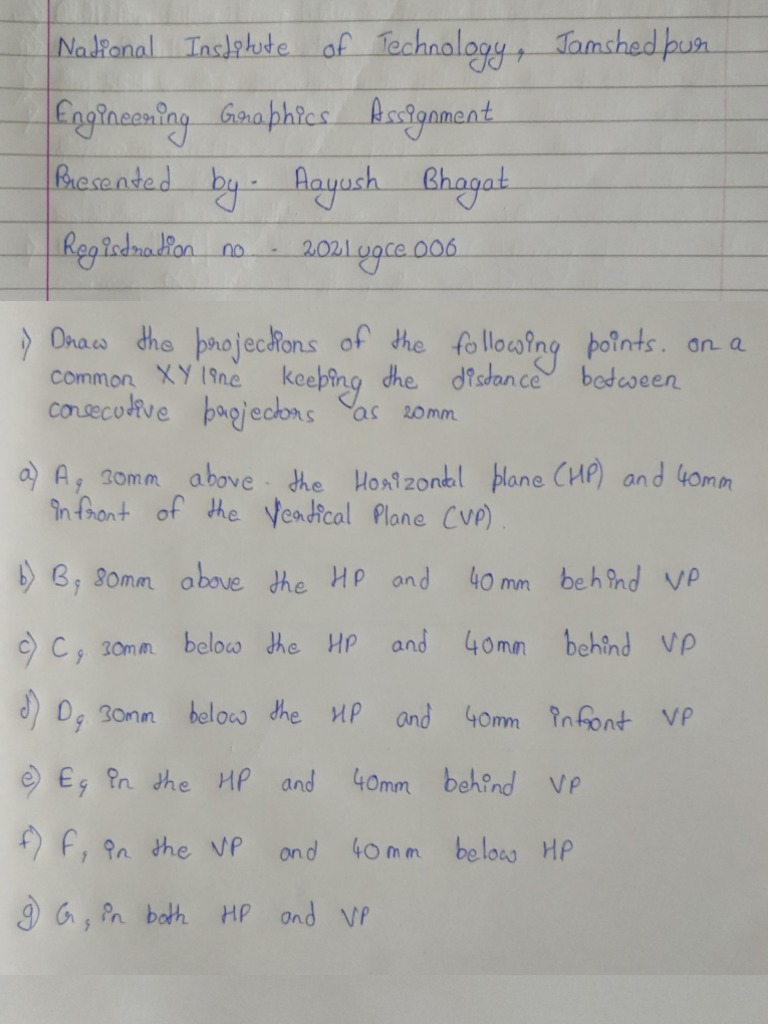 National Institute of Technology, Jamshedpur
Engineering Graphics Assignment
Presented by - Aayush Bhagat
Registration no - 2021ugce006
1) Draw the projections of the following points. on a
common XY line keeping the distance between
consecutive projectors as 20mm
a) A, 30mm above the Horizontal plane (HP) and 40mm
infront of the Vertical Plane (VP).
b) B, 80mm above the HP and 40mm behind VP
c) C, 30mm below the HP and 40mm behind VP
d) D, 30mm below the HP and 40mm infront VP
e) E, in the HP and 40mm behind VP
f) F, in the VP and 40mm below HP
g) G, in both HP and VP